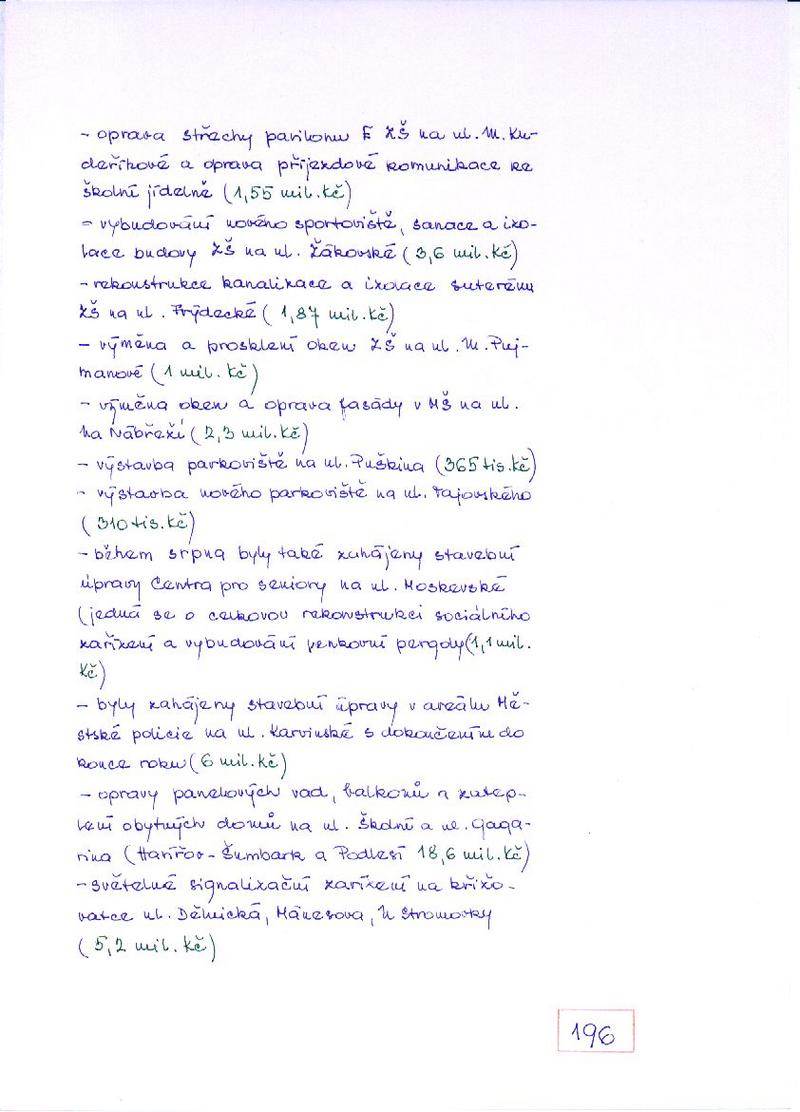 - oprava střechy pavilonu E ZŠ na ul. M. Ku-
deříkové a oprava příjezdové komunikace ke
školní jídelně (1,55 mil. Kč)
- vybudování nového sportoviště, sanace a izo-
lace budovy ZŠ na ul. Žákovské (3,6 mil. Kč)
- rekonstrukce kanalizace a izolace suterénu
ZŠ na ul. Frýdecké (1,87 mil. Kč)
- výměna a prosklení oken ZŠ na ul. M. Puj-
manové (1 mil. Kč)
- výměna oken a oprava fasády v MŠ na ul.
Na Nábřeží (2,3 mil. Kč)
- výstavba parkoviště na ul. Puškina (365 tis. Kč)
- výstavba nového parkoviště na ul. Tajovského
(310 tis. Kč)
- během srpna byly také zahájeny stavební
úpravy Centra pro seniory na ul. Moskevské
(jedná se o celkovou rekonstrukci sociálního
zařízení a vybudování venkovní pergoly (1,1 mil.
Kč)
- byly zahájeny stavební úpravy v areálu Mě-
stské policie na ul. Karvinské s dokončením do
konce roku (6 mil. Kč)
- opravy panelových vad, balkonů a zatep-
lení obytných domů na ul. Školní a ul. Gaga-
rina (Havířov-Šumbark a Podlesí 18,6 mil. Kč)
- světelné signalizační zařízení na křižo-
vatce ul. Dělnická, Mánesova, U Stromovky
(5,2 mil. Kč)
196